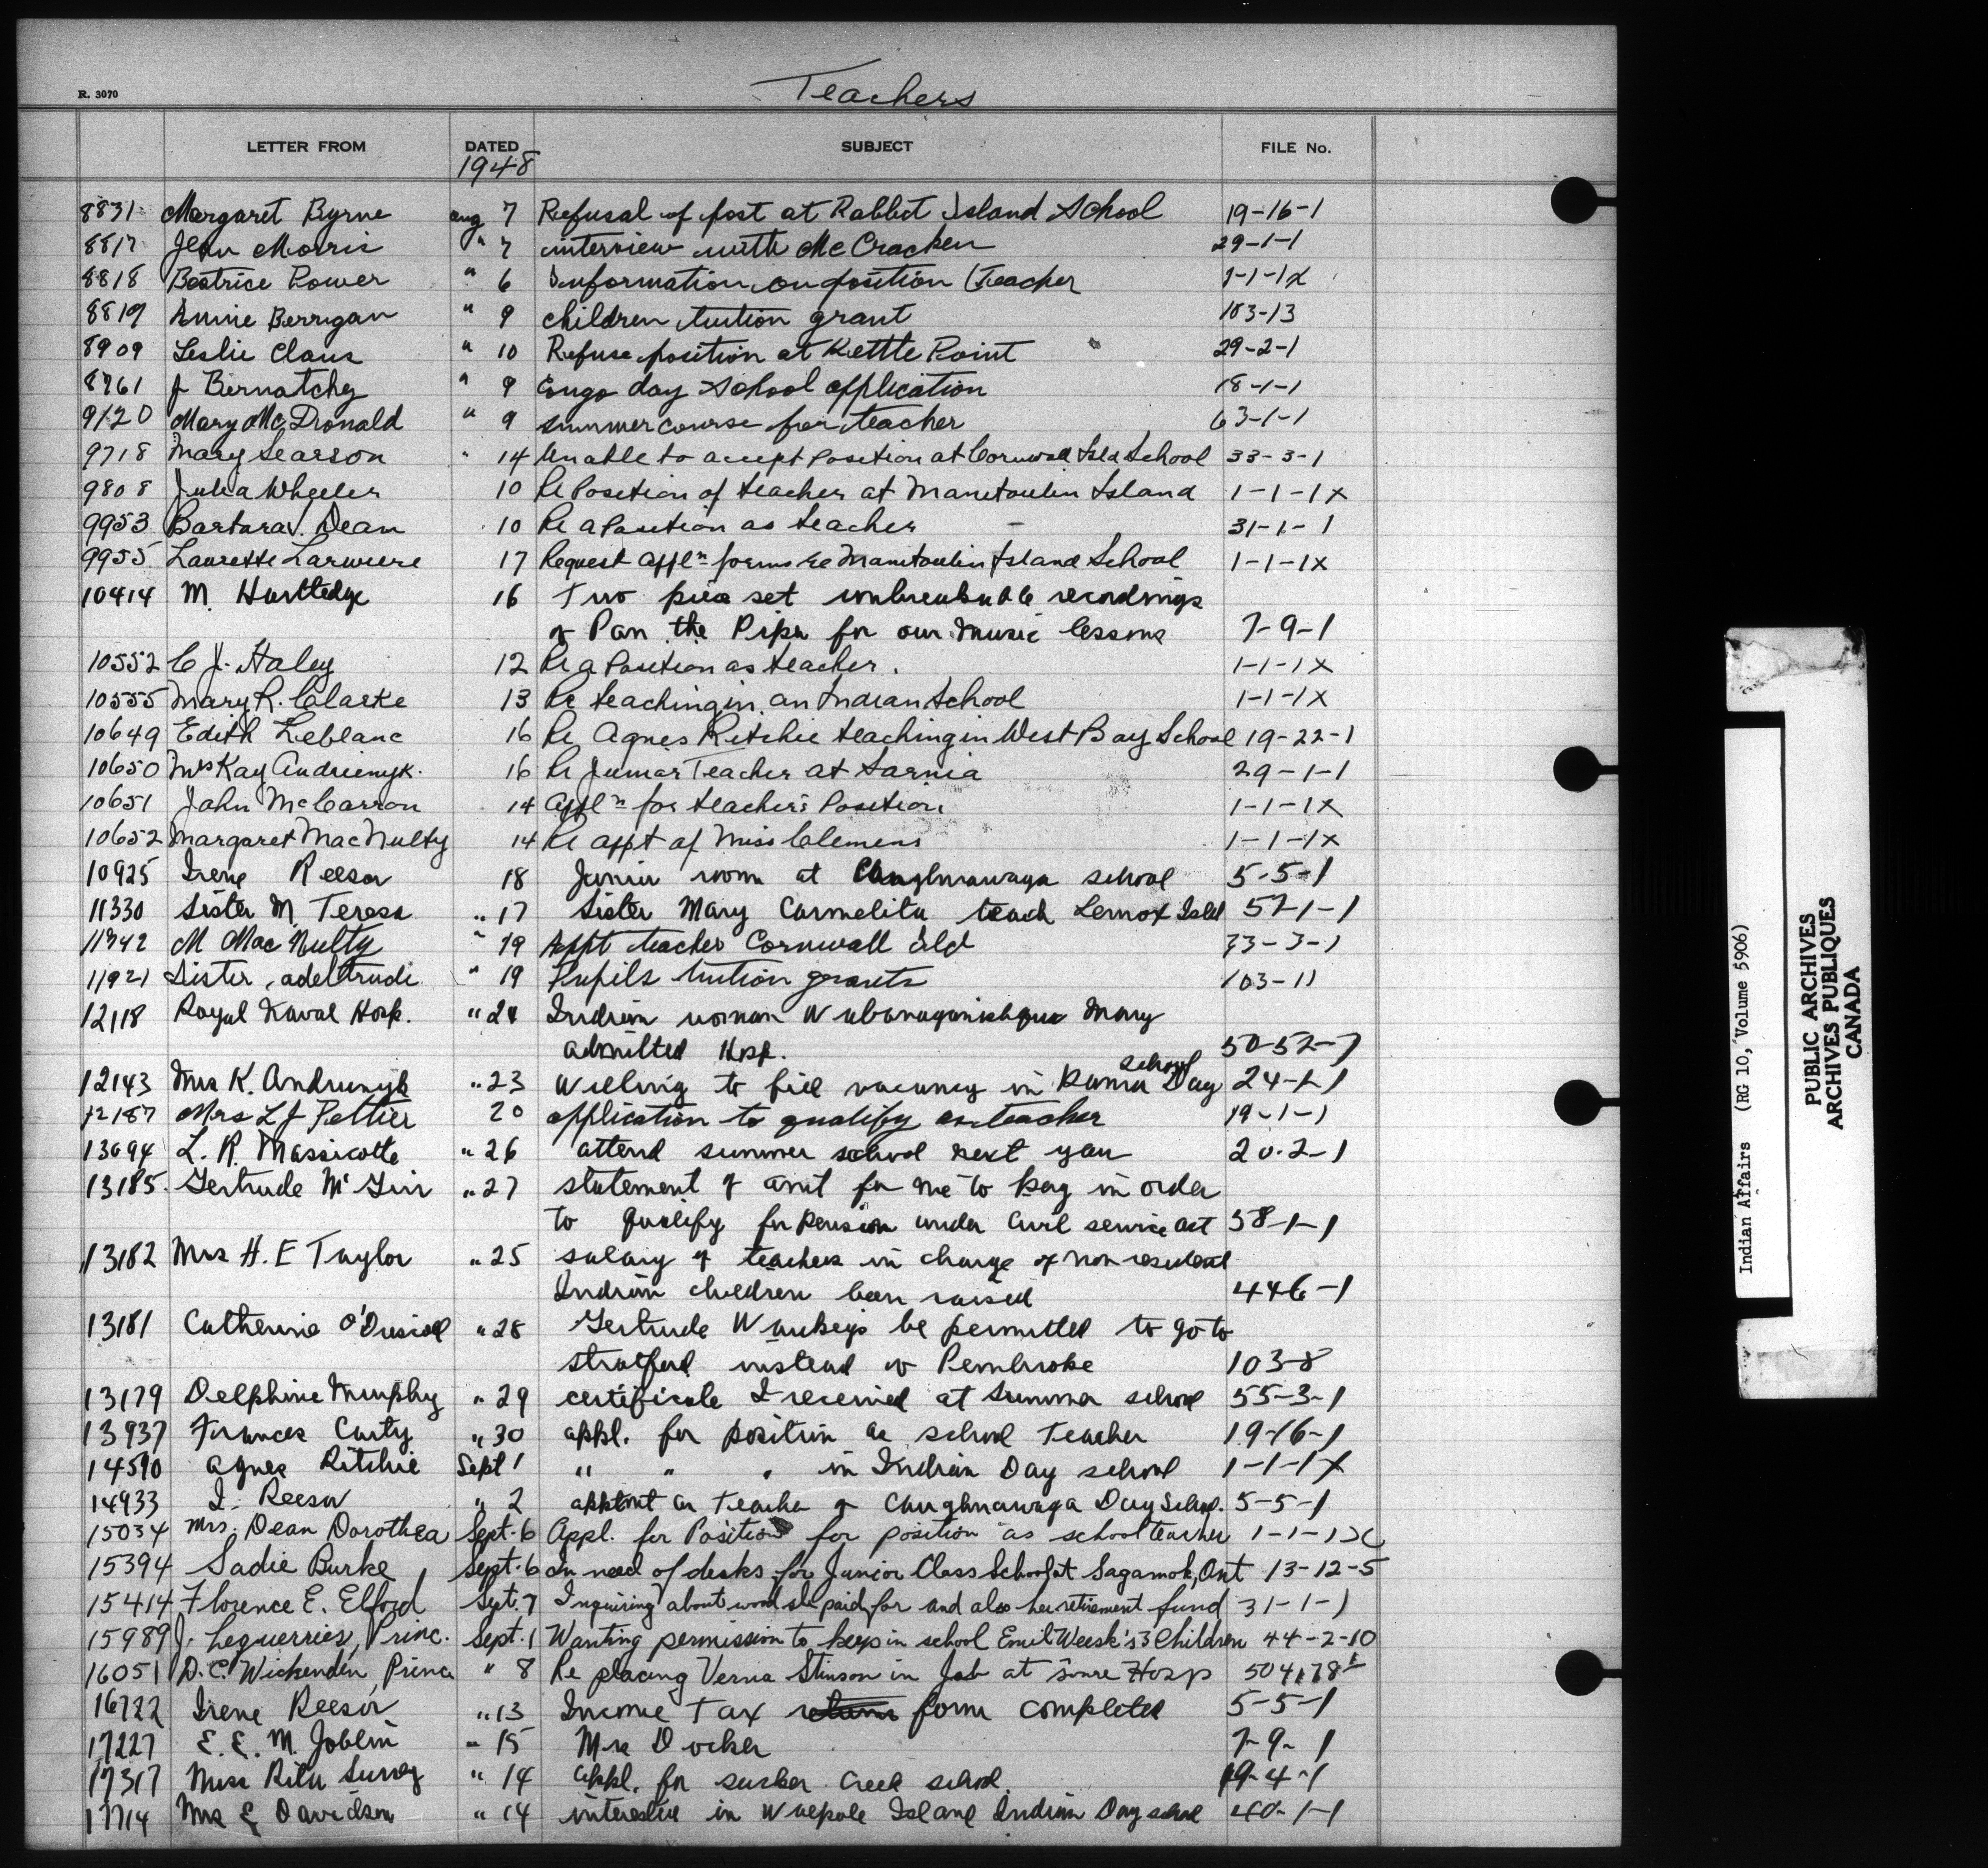 Teachers
R. 3070
LETTER FROM DATED SUBJECT FILE No.
1948
8831 Margaret Byrne Aug 7 Refusal of post at Rabbit Island School 19-16-1
8817 Jean Morris " 7 interview with McCracken 29-1-1
8818 Beatrice Power " 6 Information on position (Teacher 1-1-1X
8819 Annie Berrigan " 9 children tuition grant 103-13
8909 Leslie Claus " 10 Refuse position at Kettle Point 29-2-1
8961 J Bernatchy " 9 day school application 18-1-1
9120 Mary McDonald " 9 summer course for teacher 63-1-1
9718 Mary Searson " 14 Unable to accept Position at Cornwall Isld School 33-3-1
9808 Julia Wheeler 10 Re Position of teacher at Manitoulin Island 1-1-1x
9953 Barbara Dean 10 Re a Position as teacher 31-1-1
9955 Laurette Lariviere 17 Request Appln forms re Manitoulin Island School 1-1-1x
10414 M. 16 Two piece set unbreakable recordings
of Pan the Piper for our music lessons 7-9-1
10552 C J. Haley 12 Re a Position as teacher. 1-1-1x
10555 Mary R. Clarke 13 Re teaching in an Indian School 1-1-1x
10649 Edith Leblanc 16 Re Agnes Ritchie teaching in West Bay School 19-22-1
10650 Mrs Kay Andrienyk. 16 Re Junior Teacher at Sarnia 29-1-1
10651 John McCarron 14 Appln for teacher's Position 1-1-1x
10652 Margaret MacNulty 14 Re appt of Miss Clemens 1-1-1x
10925 Irene Reesor 18 Junior room at Caughnawaga school 5-5-1
11330 Sister M. Teresa " 17 Sister Mary Carmelita teach Lennox Isld 57-1-1
11342 M MacNulty " 19 Appt teacher Cornwall Isld 33-3-1
11921 Sister Adeltrude " 19 Pupils tuition grants 103-11
12118 Royal Naval Hosp. " 24 Indian woman Mary
admitted Hosp. 50-52-7
school
12143 Mrs K. Andrunyk " 23 Willing to fill vacancy in Rama Day 24-1-1
12187 Mrs L J Peltier 20 application to qualify as teacher 19-1-1
13094 L. R. Massicotte " 26 attend summer school next year 20-2-1
13185. Gertrude McGirr " 27 statement of amt for me to pay in order
to qualify for pension under Civil service act 58-1-1
13182 Mrs H. E Taylor " 25 salary of teachers in charge of non resident
Indian children been raised 446-1
13181 Catherine O'Driscoll " 28 Gertrude be permitted to go to
Stratford instead of Pembroke 103-8
13179 Delphine Murphy " 29 certificate I received at Summer school 55-3-1
13937 Frances Carty " 30 appl. for position as school Teacher 19-16-1
14590 Agnes Ritchie Sept 1 " " " in Indian Day school 1-1-1X
14933 I. Reesor " 2 apptmt as Teacher of Caughnawaga Day School. 5-5-1
15034 Mrs. Dean Dorothea Sept. 6 Appl. for Position for position as school teacher 1-1-1X
15394 Sadie Burke Sept. 6 In need of desks for Junior Class School at Sagamok, Ont 13-12-5
15414 Florence E. Elford Sept. 7 Inquiring about wood she paid for and also her retirement fund 31-1-1
15989 J. Leguerrier, Princ. Sept. 1 Wanting permission to keep in school Emil Weesk's 3 Children 44-2-10
16051 D.C. Wickenden, Princ " 8 Re placing Verna Stinson in Job at Hosp
16722 Irene Reesor " 13 Income Tax return form completed 5-5-1
17227 E. E. M. Joblin " 15 Mrs Docker 7-9-1
17317 Miss Rita Surrey " 14 appl. for Sucker Creek school. 19-4-1
17714 Mrs E Davidson " 14 interested in Walpole Island Indian Day school 40-1-1
Indian Affairs (RG 10, Volume 5906)
PUBLIC ARCHIVES
ARCHIVES PUBLIQUES
CANADA